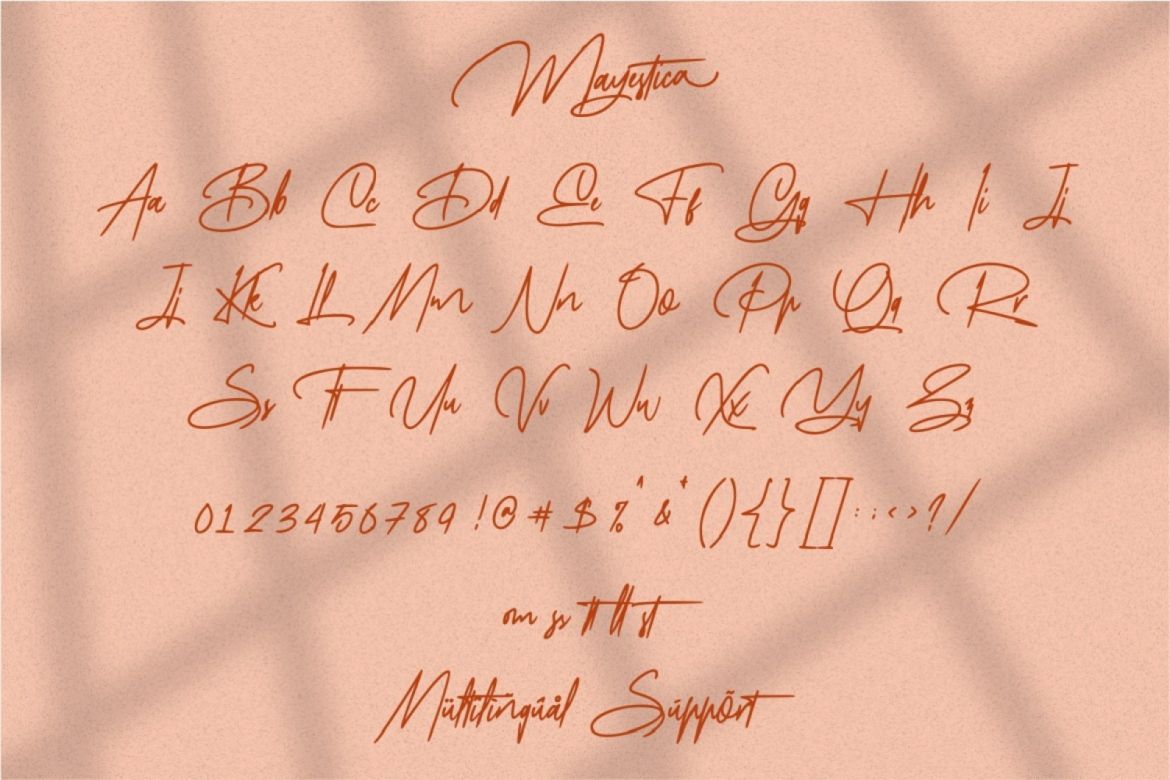 Mayestica
Aa Bb Cc Dd Ee Ff Gg Hh Ii Jj
Jj Kk Ll Mm Nn Oo Pp Qq Rr
Ss Tt Uu Vv Ww Xx Yy Zz
0123456789 !@#$%^&*(){}[]:;<>?/
om ss tt lt st
Mültilingúål Súppõrt